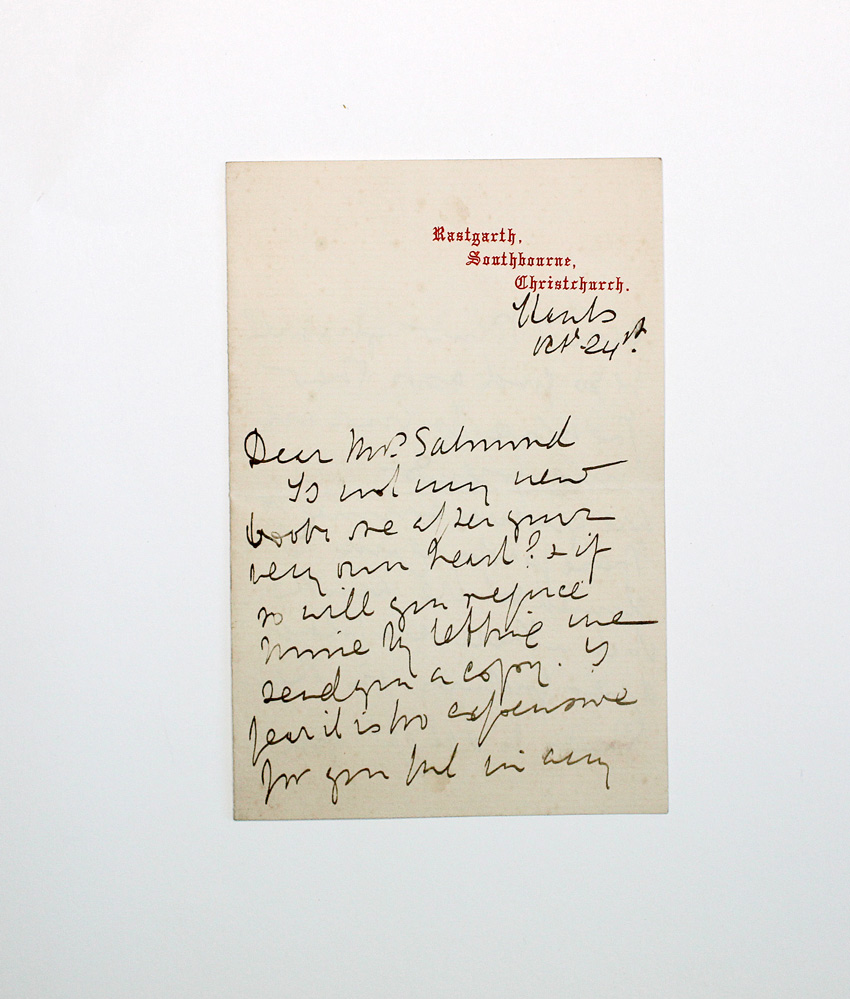 Rastgarth,
Southbourne,
Christchurch.
Hants
Oct 24st.
Dear Mrs. Salmond
Is not my new
book one after your
very own heart? & if
so will you rejoice
mine by letting me
send you a copy. I
fear it is too expensive
for you but in any